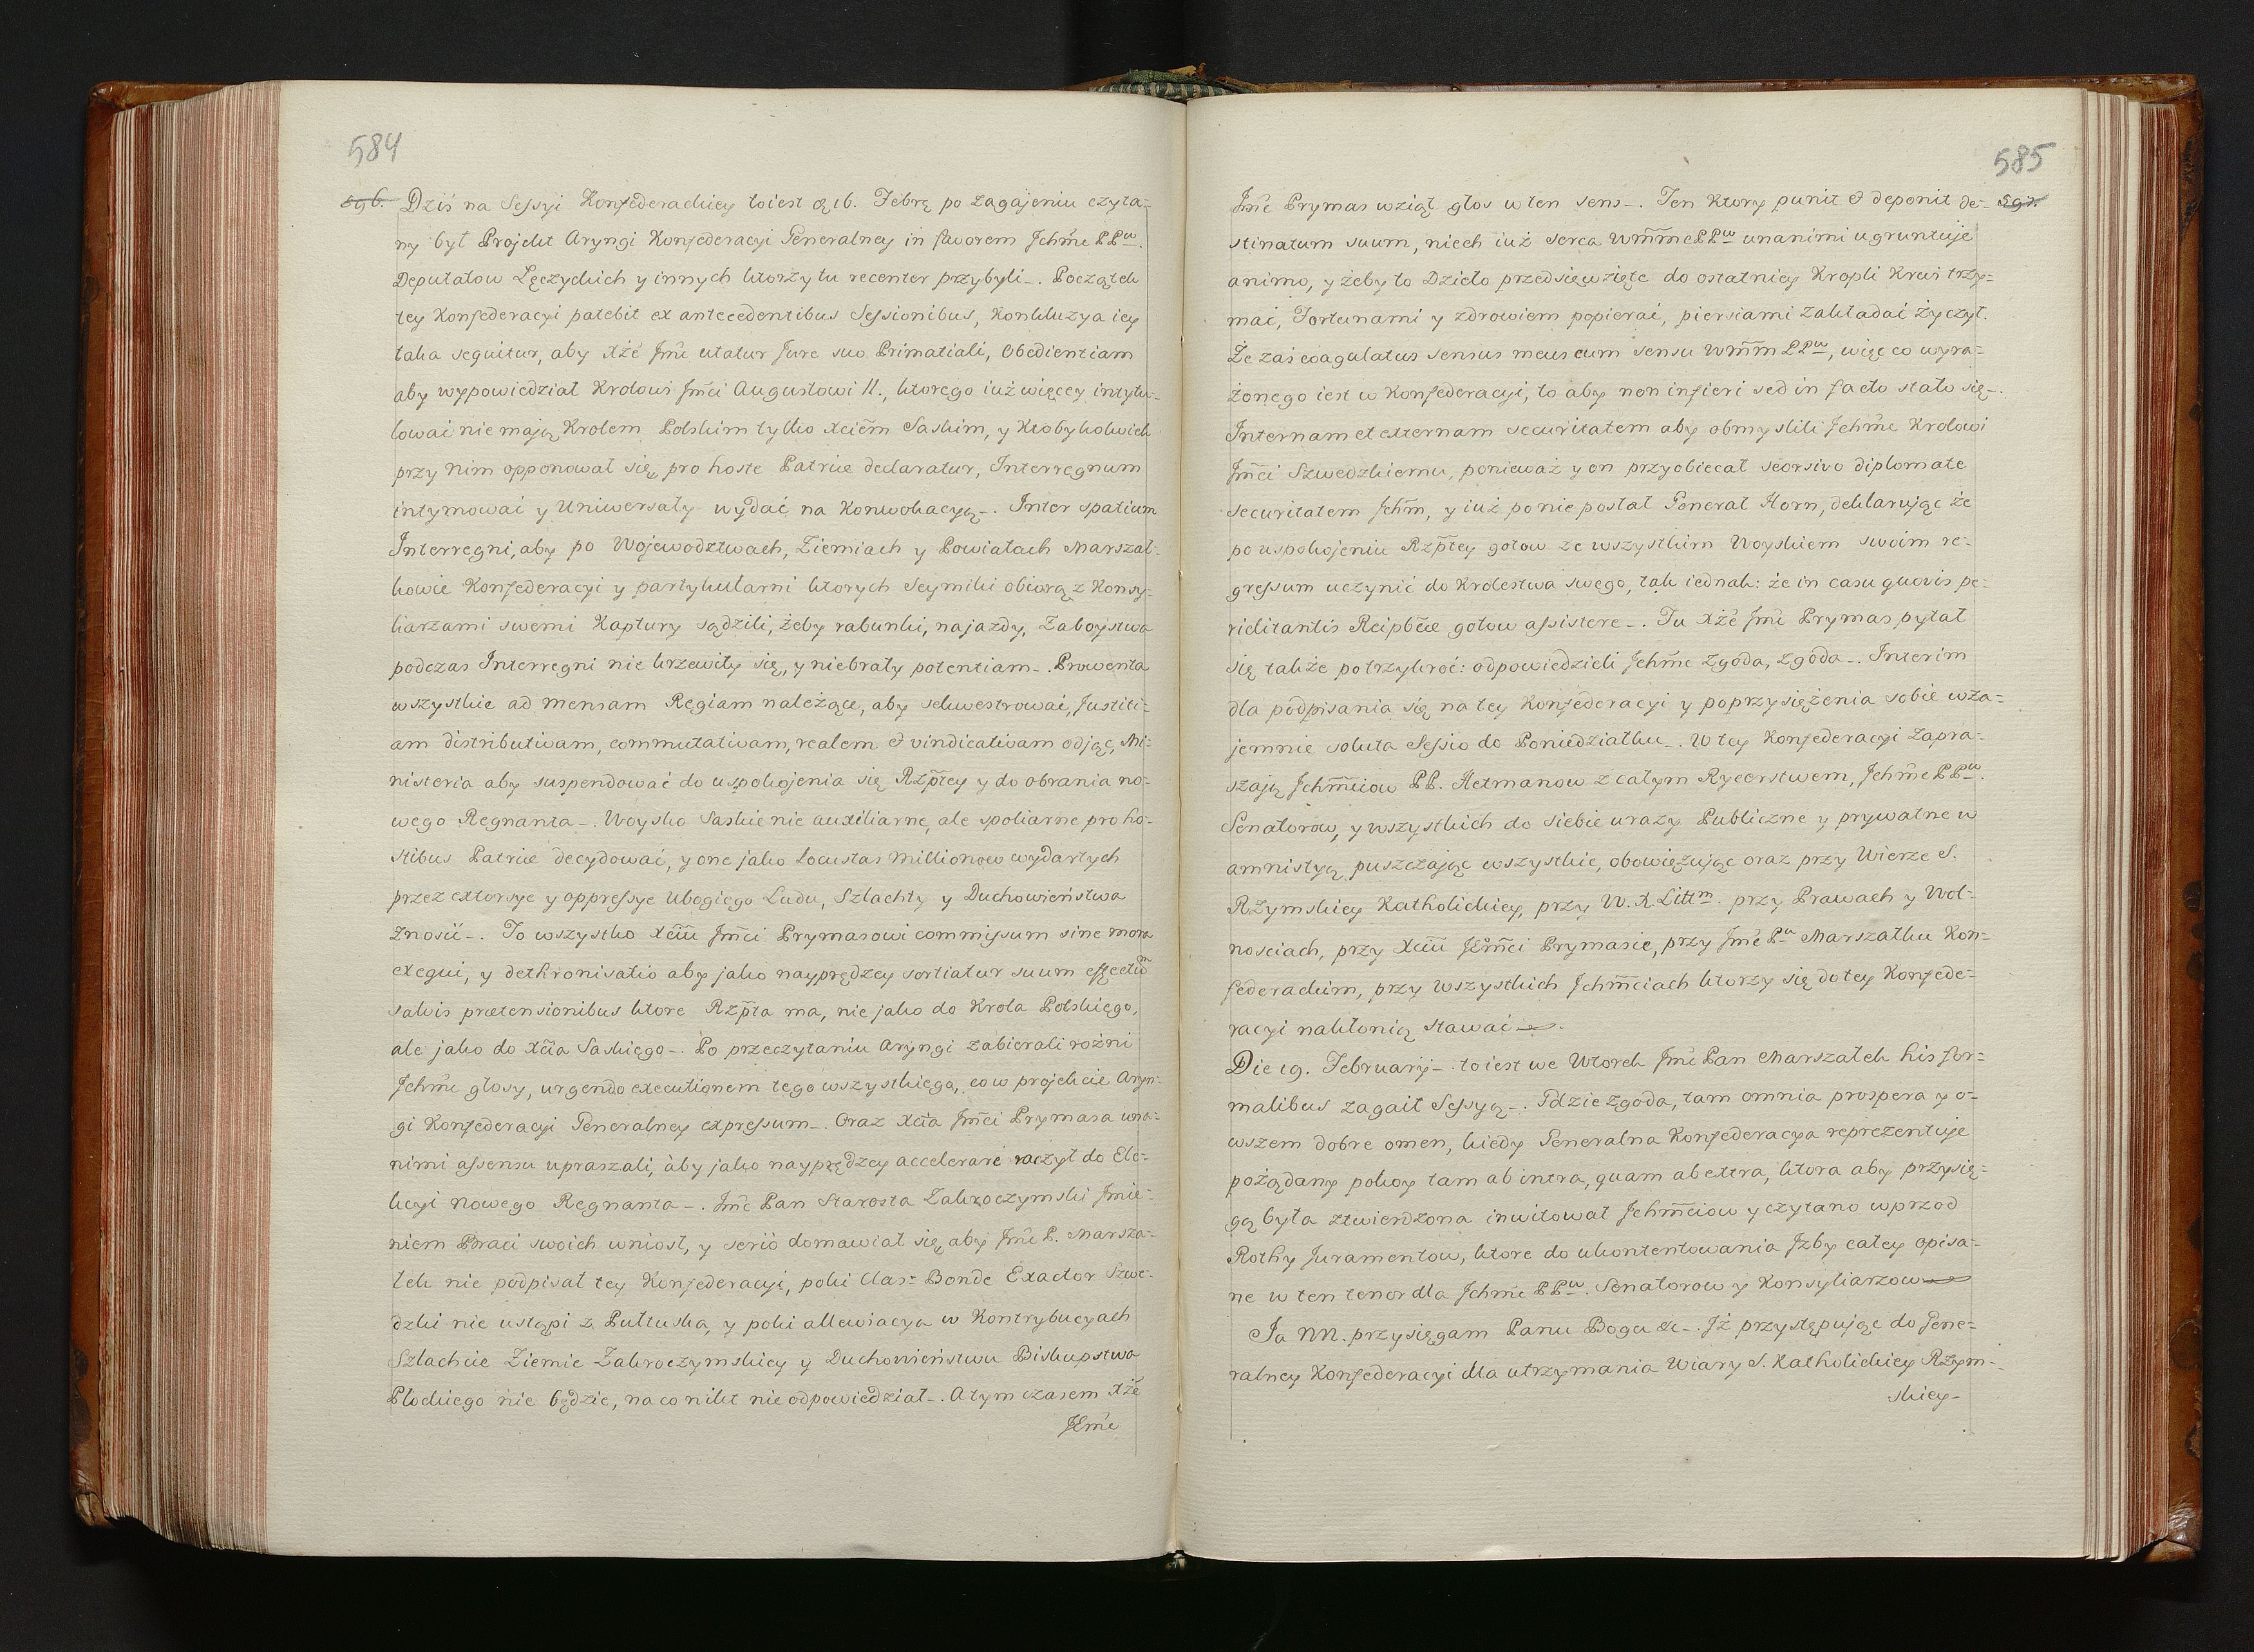 584
596. Dziś na Sessyi Konfederackiey toiest die 16. Febrę po zagajeniu czyta-
ny był Projekt Aryngi Konfederacyi Generalney in favorem Jchm̃c PPw.
Deputatow Łęczyckich y innych ktorzy tu recenter przybyli-. Początek
tey Konfederacyi patebit ex antecedentibus Sessionibus, Konkluzya iey
taka sequitur, aby Xżẽ Jm̃c utatur Jure suo Primatiali, Obedientiam
aby wypowiedział Krolowi Jm̃ci Augustowi II., ktorego iuż więcey intytu-
lowai nie mają Krolem Polskim tylko Xciem̃ Saskim, y Ktobykolwiek
przy Nim opponował się, pro hoste Patriæ declaratur, Interregnum
intymowai y Uniwersały wydać na Konwokacyą-. Inter spatium
Interregni, aby po Wojewodztwach, Ziemiach y Powiatach Marszał-
kowie Konfederacyi y partykularni ktorych Seymiki obiorą z Konsy-
liarzami swemi Kaptury sądzili, żeby rabunki, najazdy, Zaboystwa
podczas Interregni nie krzewiły się, y niebrały potentiam-. Prowenta
wszystkie ad mensam Regiam należące, aby sekwestrowai, Justiti-
am distributivam, commutativam, realem & vindicativam odjąc, Mi-
nisteria aby suspendować do uspokojenia się Rzp̃tey y do obrania no-
wego Regnanta-. Woysko Saskie nie auxiliarne, ale spoliarne pro ho-
stibus Patriæ decydowai, y one jako Locustas Millionow wydartych
przez extorsye y oppressye Ubogiego Ludu, Szlachty y Duchowieństwa
Znosii-. To wszystko Xciũ Jm̃ci Prymasowi commissum sine mora
exequi, y dethronisatio aby jako nayprędzey sortiatur suum effectũm
salvis prætensionibus ktore Rzp̃ta ma, nie jako do Krola Polskiego,
ale jako do Xc̃ia Saskiego-. Po przeczytaniu Aryngi zabierali rożni
Jchm̃c głosy, urgendo executionem tego wszystkiego, co w projekcie Aryn-
gi Konfederacyi Generalney expressum-. Oraz Xc̃ia Jm̃ci Prymasa una-
nimi assensu upraszali, aby jako nayprędzey accelerare raczył do Ele-
kcyi Nowego Regnanta-. Jm̃c Pan Starosta Zakroczymski Jmie-
niem Braci swoich wniosł, y serio domawiał się, aby Jm̃c P. Marsza-
łek nie podpisał tey Konfederacyi, poki Bonde Exactor Szwe-
dzki nie ustąpi z Pułtuska, y poki allewiacya w Kontrybucyach
Szlachcie Ziemie Zakroczymskiey y Duchowieństwu Biskupstwa
Płockiego nie będzie, na co nikt nie odpowiedział-. A tym czasem Xżẽ
JEm̃c
585
Jm̃c Prymas wziął głos w ten sens-. Ten Ktory punit & deponit de- 597.
stinatum suum, niech iuż serca Wm̃m̃c PPw unanimi ugruntuje
animo, y żeby to Dzieło przedsięwzięte do ostatniey Kropli Krwi trzy-
mai, Fortunami y zdrowiem popierai, piersiami zakładai życzył.
Że zaś coagulatus sensus meus cum sensu Wm̃m PPw, więc co wyra-
żonego iest w Konfederacyi, to aby non infieri sed in facto stało się-.
Internam et externam securitatem aby obmyslili Jchm̃c Krolowi
Jm̃ci Szwedzkiemu, ponieważ y on przyobiecał seorsivo diplomate
securitatem Jchm̃, y iuż po nie posłał General Horn, deklarując że
po uspokojeniu Rzp̃tey gotow ze wszystkim Woyskiem swoim re-
gressum uczynić do Krolestwa swego, tak iednak: że in casu quovis pe-
riclitantis Reipb̃cæ gotow assistere-. Tu Xżẽ Jm̃c Prymas pytał
się także potrzykroć: odpowiedzieli Jchm̃c Zgoda, Zgoda-. Interim
dla podpisania się na tey Konfederacyi y poprzysiężenia sobie wza-
jemnie soluta Sessio do Poniedziałku-. W tey Konfederacyi Zapra-
szają Jchm̃ciow PP. Hetmanow z całym Rycerstwem, Jchm̃c PPw.
Senatorow, y wszystkich do siebie urazy Publiczne y prywatne w
amnistyą puszczając wszystkie, obowięzując oraz przy Wierze S.
Rzymskiey Katholickiey, przy W. X. Littm. przy Prawach y Wol-
nosciach, przy Xciũ JEm̃ci Prymasie, przy Jm̃c Pu Marszałku Kon-
federackim, przy wszystkich Jchm̃ciach ktorzy się do tey Konfede-
racyi nakłonią stawai-.
Die 19. Februarij-. to iest we Wtorek Jm̃c Pan Marszałek his for-
malibus zagaił Sessyą-. Gdzie Zgoda, tam omnia prospera y o-
wszem dobre omen, kiedy Generalna Konfederacya reprezentuje
pożądany pokoy tam ab intra, quam ab extra, ktora aby przysię-
gą była ztwierdzona inwitował Jchm̃ciow y czytano wprzod
Rothy Juramentow, ktore do ukontentowania Jzby całey opisa-
ne w ten tenor dla Jchm̃c PPw. Senatorow y Konsyliarzow
Ja NN. przysięgam Panu Bogu &c-. Jż przystępując do Gene-
ralney Konfederacyi dla utrzymania Wiary S. Katholickiey Rzym-
skiey-